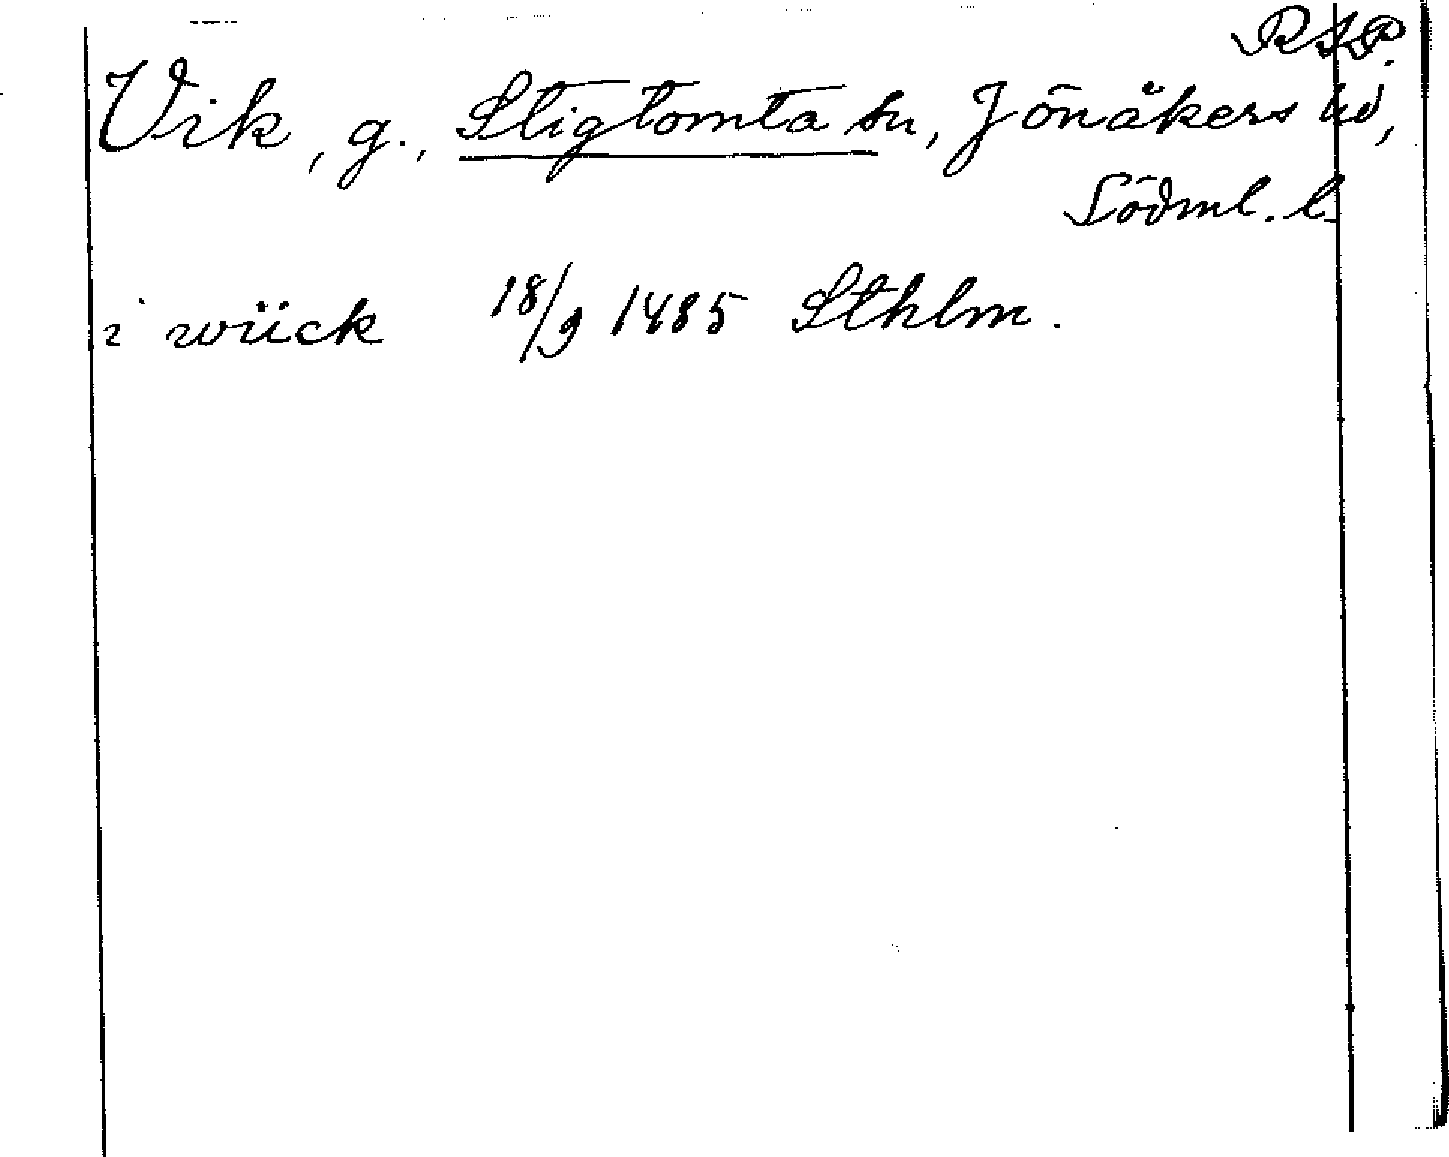 RAP.
Vik, g., Stigtomta sn, Jönåkers hd,
Södml. l.
i wiick 18/9 1485 Sthlm.